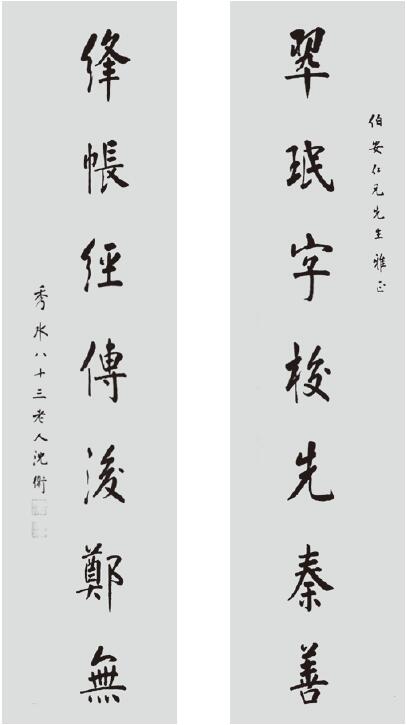 伯安仁兄先生雅正
翠珉字校先秦善
絳帳經傳後鄭無
秀水八十三老人沈衛